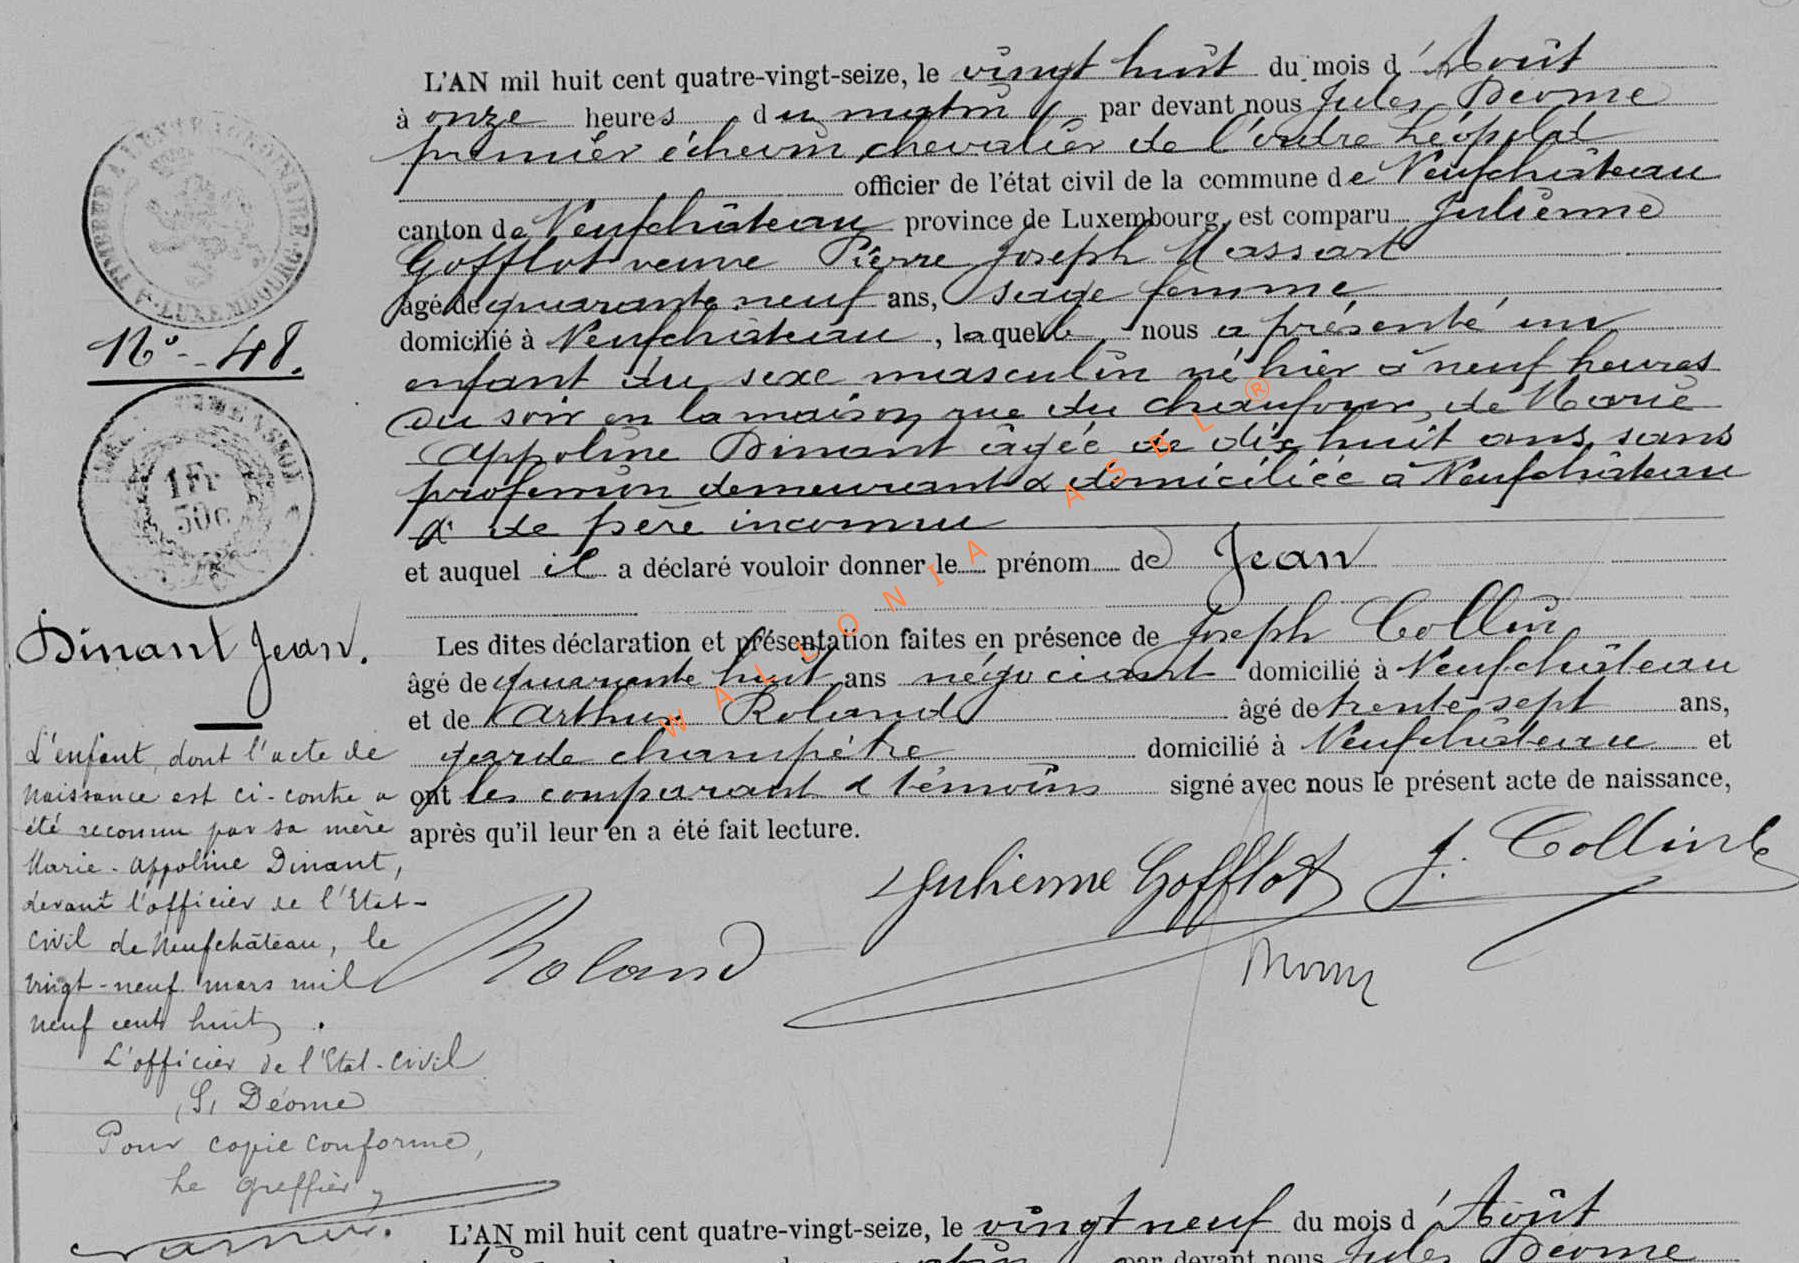 L'AN mil huit cent quatre-vingt-seize, le vingt huit du mois d'Août
à onze heures du matin par devant nous Jules Deome
premier échevin, chevalier de l'ordre Léopold
officier de l'état civil de la commune de Neufchâteau
canton de Neufchâteau province de Luxembourg, est comparu Julienne
Gofflot veuve Pierre Joseph Massart
âgé de quarante neuf ans, sage femme
domicilié à Neufchâteau, laquelle nous a présenté un
enfant du sexe masculin né hier à neuf heures
du soir en la maison, rue du chaufour, de Marie
Appoline Dinant âgée de dix huit ans, sans
profession demeurant & domiciliée à Neufchâteau
& de père inconnu
et auquel il a déclaré vouloir donner le prénom de Jean
Les dites déclaration et présentation faites en présence de Joseph Collin
âgé de quarante huit ans négociant domicilié à Neufchâteau
et de Arthur Roland âgé de trente sept ans,
garde champêtre domicilié à Neufchâteau et
ont les comparant & témoins signé avec nous le présent acte de naissance,
après qu'il leur en a été fait lecture.
Julienne Gofflot J. Collin
Roland
TIMBRE A L'EXTRAORDINAIRE
LUXEMBOURG
N° - 48.
1 Fr
30c
Dinant Jean.
L'enfant, dont l'acte de
naissance est ci-contre a
été reconnu par sa mère
Marie-Appoline Dinant,
devant l'officier de l'Etat-
civil de Neufchâteau, le
vingt-neuf mars mil
neuf cent huit.
L'officier de l'Etat-civil
(S) Déome
Pour copie conforme,
Le greffier,
WALLONIA ASBL ®
L'AN mil huit cent quatre-vingt-seize, le vingt neuf du mois d'Août
par devant nous Jules Deome